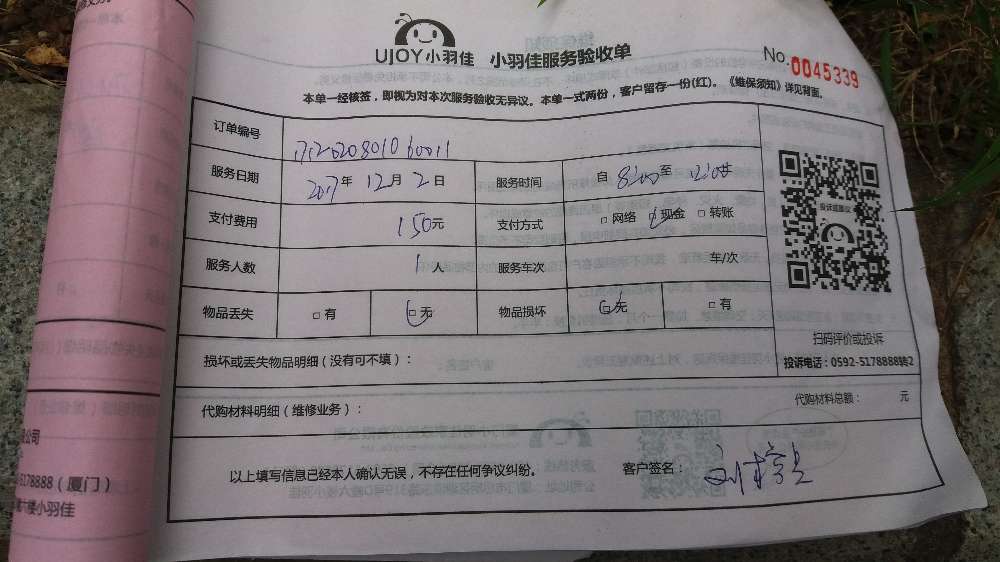 UJOY小羽佳 小羽佳服务验收单
No.0045339
本单一经核签，即视为对本次服务验收无异议。本单一式两份，客户留存一份(红)。《维保须知》详见背面。
订单编号
服务日期 2017年 12月 2日 服务时间 自 8:00 至
支付费用 150元 支付方式 □网络 □现金 □转账
服务人数 1人 服务车次 车/次
物品丢失 □有 □无 物品损坏 □无 □有
投诉或建议
扫码评价或投诉
投诉电话：0592-5178888转2
损坏或丢失物品明细（没有可不填）：
代购材料明细（维修业务）： 代购材料总额： 元
以上填写信息已经本人确认无误，不存在任何争议纠纷。 客户签名：
限公司
5178888（厦门）
六楼小羽佳